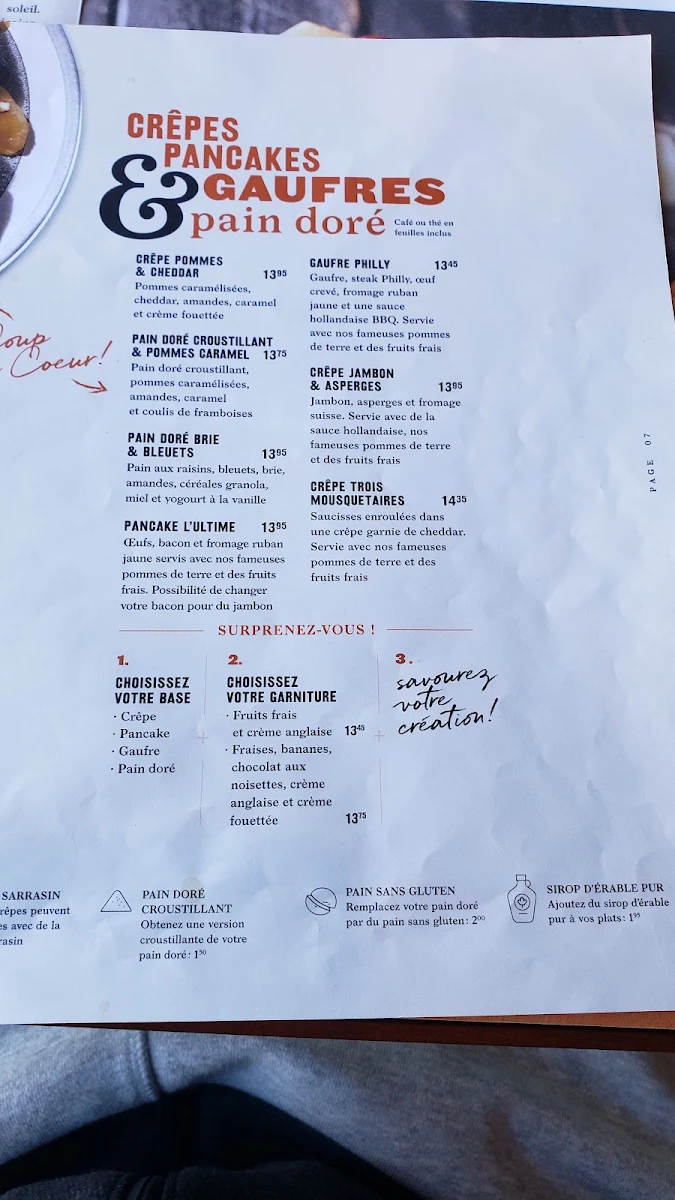 soleil.
CRÊPES
PANCAKES
& GAUFRES
pain doré
Café ou thé en
feuilles inclus
CRÊPE POMMES
& CHEDDAR 13⁹⁵
Pommes caramélisées,
cheddar, amandes, caramel
et crème fouettée
Coeur!
PAIN DORÉ CROUSTILLANT
& POMMES CARAMEL 13⁷⁵
Pain doré croustillant,
pommes caramélisées,
amandes, caramel
et coulis de framboises
PAIN DORÉ BRIE
& BLEUETS 13⁹⁵
Pain aux raisins, bleuets, brie,
amandes, céréales granola,
miel et yogourt à la vanille
PANCAKE L'ULTIME 13⁹⁵
Œufs, bacon et fromage ruban
jaune servis avec nos fameuses
pommes de terre et des fruits
frais. Possibilité de changer
votre bacon pour du jambon
GAUFRE PHILLY 13⁴⁵
Gaufre, steak Philly, œuf
crevé, fromage ruban
jaune et une sauce
hollandaise BBQ. Servie
avec nos fameuses pommes
de terre et des fruits frais
CRÊPE JAMBON
& ASPERGES 13⁹⁵
Jambon, asperges et fromage
suisse. Servie avec de la
sauce hollandaise, nos
fameuses pommes de terre
et des fruits frais
CRÊPE TROIS
MOUSQUETAIRES 14³⁵
Saucisses enroulées dans
une crêpe garnie de cheddar.
Servie avec nos fameuses
pommes de terre et des
fruits frais
PAGE 07
SURPRENEZ-VOUS !
1.
CHOISISSEZ
VOTRE BASE
· Crêpe
· Pancake
· Gaufre
· Pain doré
2.
CHOISISSEZ
VOTRE GARNITURE
· Fruits frais
et crème anglaise 13⁴⁵
· Fraises, bananes,
chocolat aux
noisettes, crème
anglaise et crème
fouettée 13⁷⁵
3.
savourez
votre
création!
SARRASIN
rêpes peuvent
es avec de la
rasin
PAIN DORÉ
CROUSTILLANT
Obtenez une version
croustillante de votre
pain doré : 1⁵⁰
PAIN SANS GLUTEN
Remplacez votre pain doré
par du pain sans gluten : 2⁰⁰
SIROP D'ÉRABLE PUR
Ajoutez du sirop d'érable
pur à vos plats : 1⁹⁵